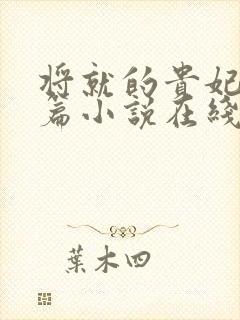 将就的貴妃
篇小説在綫
葉木四